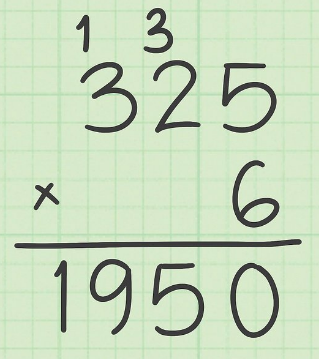 1 3
325
× 6
1950